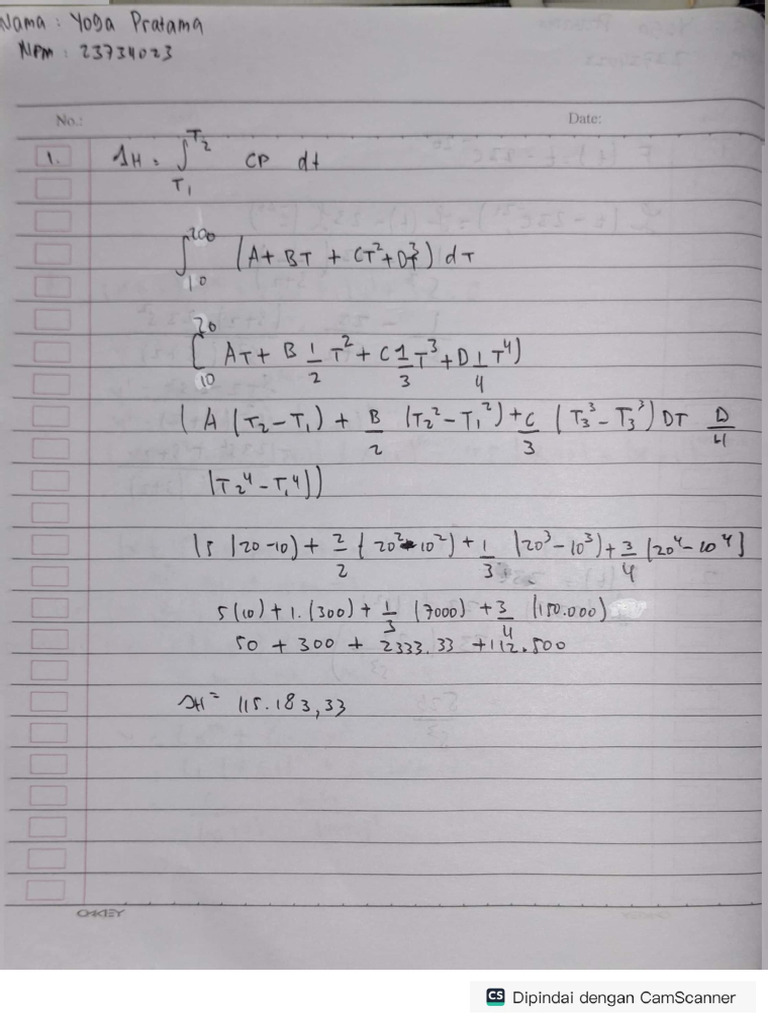 Nama : Yoga Pratama
NPM : 23734023
No.: Date:
1. ΔH = ∫ T₁ T₂ CP dt
∫ 10 200 (A + BT + CT² + DT³) dT
[ 10 20 AT + B 1/2 T² + C 1/3 T³ + D 1/4 T⁴)
( A (T₂ - T₁) + B/2 (T₂² - T₁²) + C/3 (T₃³ - T₃³) DT D/4
(T₂⁴ - T₁⁴))
(5 (20-10) + 2/2 (20² - 10²) + 1/3 (20³ - 10³) + 3/4 (20⁴ - 10⁴)
5(10) + 1.(300) + 1/3 (7000) + 3/4 (150.000)
50 + 300 + 2333.33 + 112.500
ΔH = 115.183,33
OAKLEY
CS Dipindai dengan CamScanner